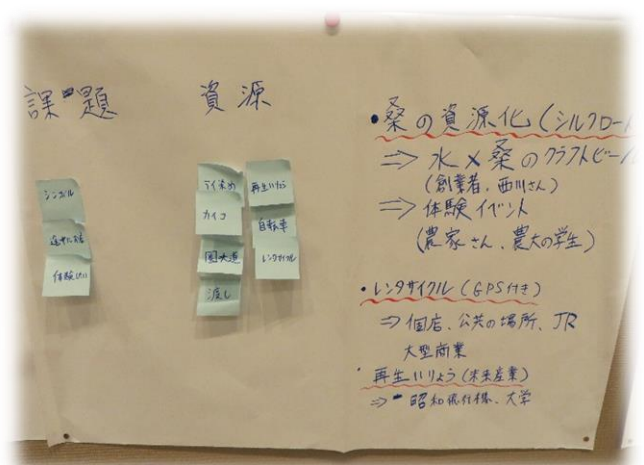 課題
シンボル
体験したい
資源
カイコ
圏央道
渡し
自転車
レンタサイクル
・桑の資源化(シルクロー
⇒ 水×桑のクラフトビー
(創業者、西川さん)
⇒ 体験イベント
(農家さん、農大の学生)
・レンタサイクル(GPS付き)
⇒個店、公共の場所、JR
大型商業
・再生いりょう(未来産業)
⇒ 昭和飛行機、大学